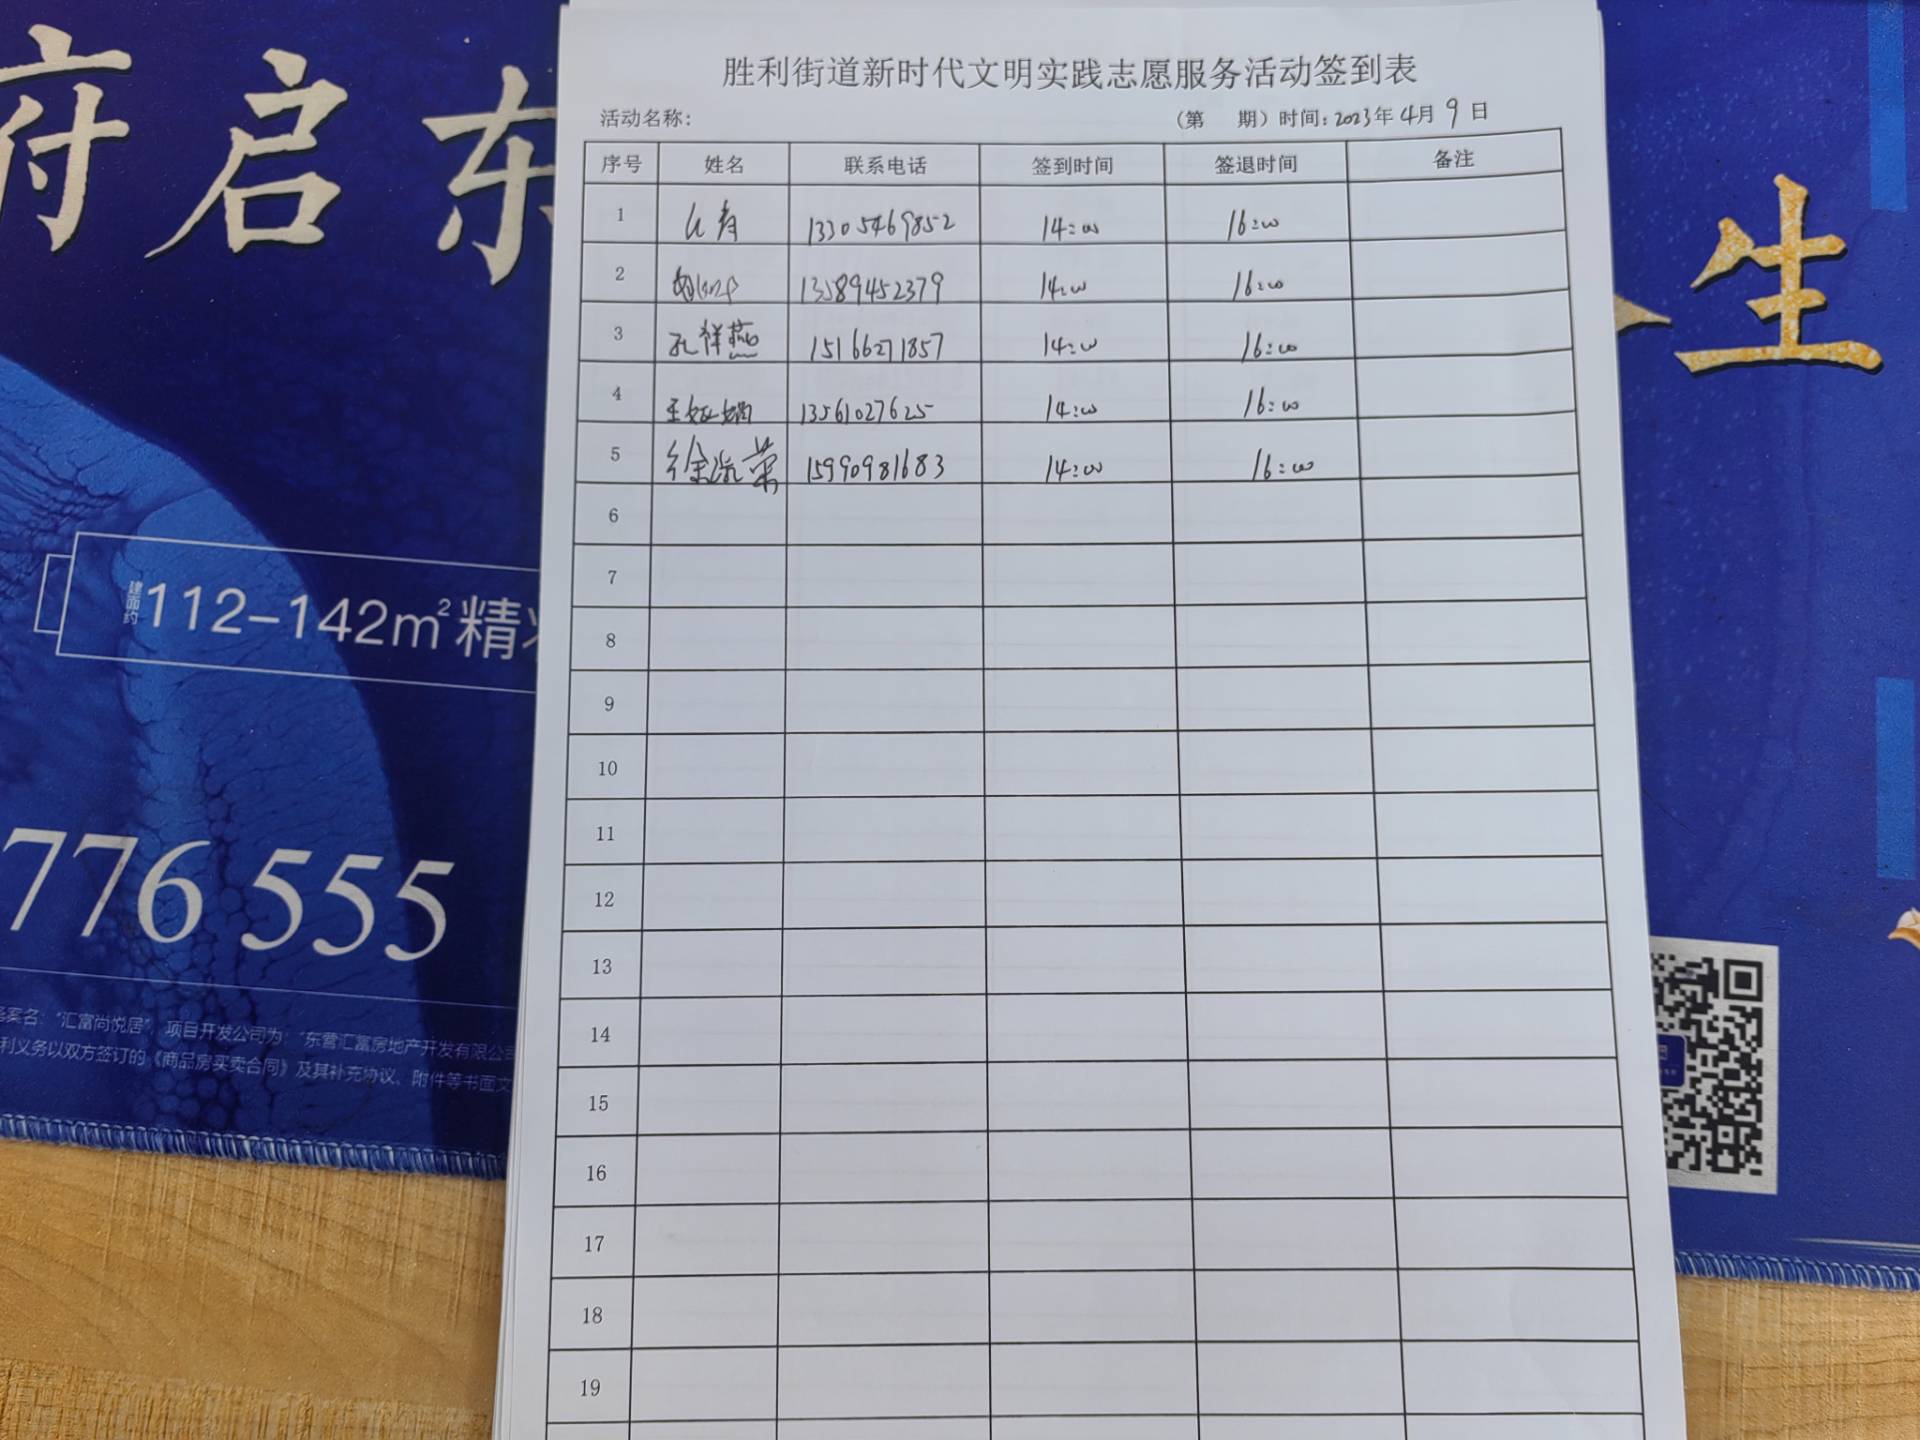 府启东
生
建面约112-142m²精
776 555
案名：“汇富尚悦居”，项目开发公司为：“东营汇富房地产开发有限公司
利义务以双方签订的《商品房买卖合同》及其补充协议、附件等书面文
胜利街道新时代文明实践志愿服务活动签到表
活动名称： （第 期）时间：2023年4月9日
序号 姓名 联系电话 签到时间 签退时间 备注
1 13305469852 14:00 16:00
2 13589452379 14:00 16:00
3 孔祥燕 15166271857 14:00 16:00
4 王 13561027625 14:00 16:00
5 徐 荣 15990981683 14:00 16:00
6
7
8
9
10
11
12
13
14
15
16
17
18
19